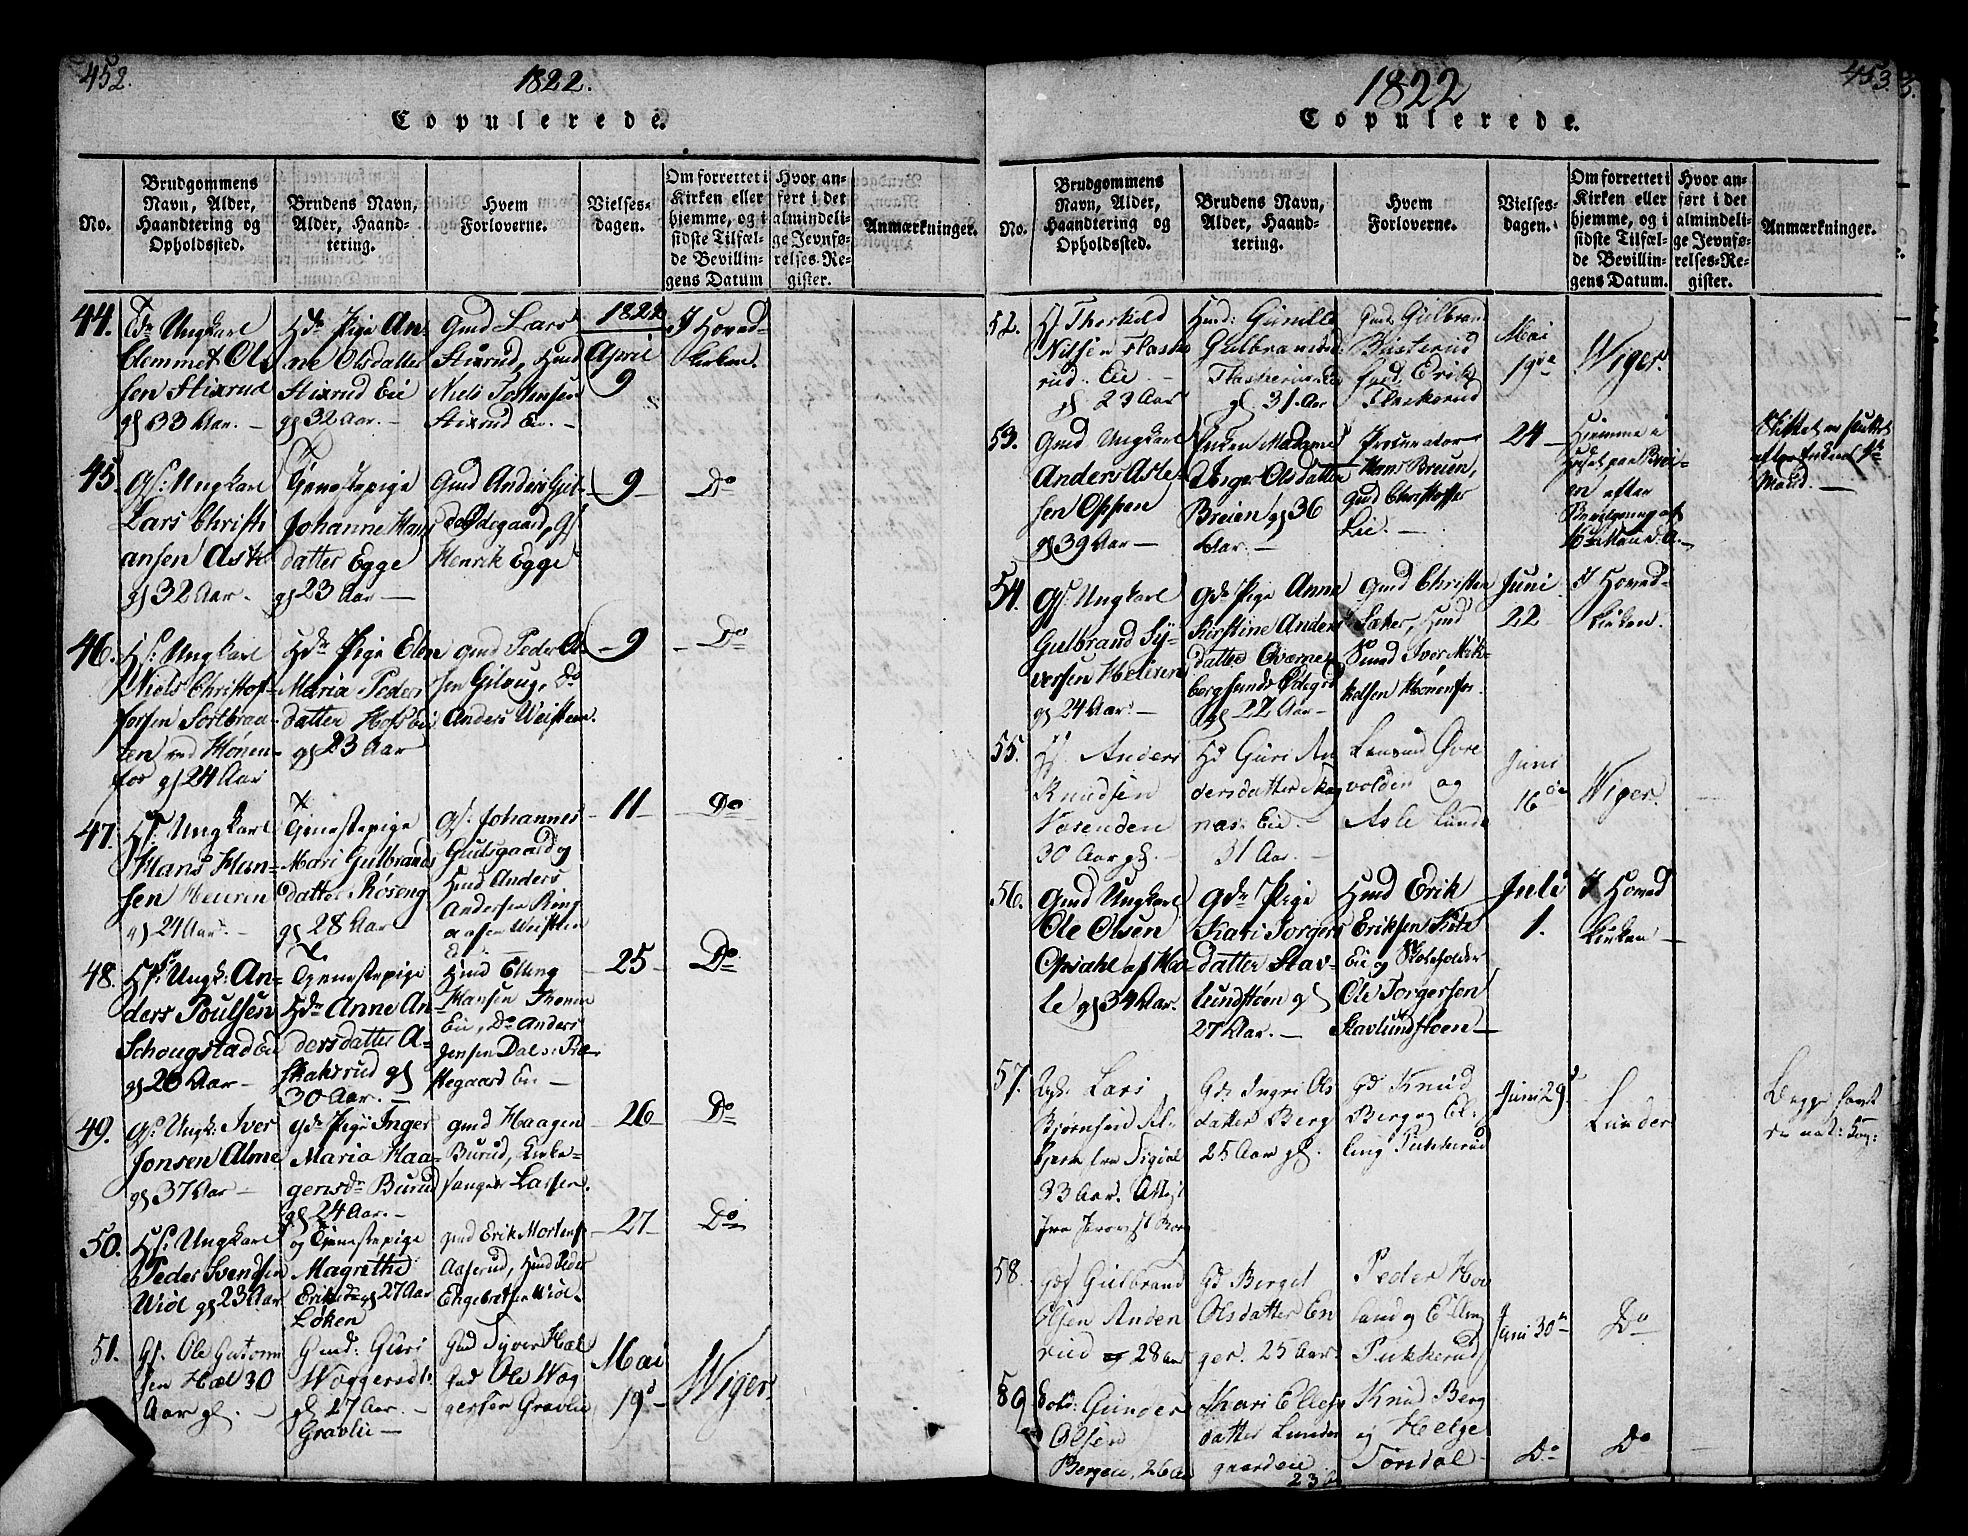 452.
1822.
Copulerede.
No.
Brudgommens Navn, Alder, Haandtering og Opholdssted.
Brudens Navn, Alder, Haandtering.
Hvem Forloverne.
Vielsesdagen.
Om forrettet i Kirken eller hjemme, og i sidste Tilfælde Bevillingens Datum
Hvor anført i det almindelige Jevnførelses-Register.
Anmærkninger.
44.
Ungkarl
Clemmet Ol-
sen Stixrud
33 Aar. —
Pige An-
ne Olsdatter
Stixrud Eie
32 Aar. —
Gmd Lars
Stixrud, Hmd
Niels Tostensen
Stixrud Eie. —
1822
April
9
I Hoved-
kirken.
45.
Ungkarl
Lars Christi-
ansen Ask
32 Aar.
Tjenestepige
Johanne Hans
datter Egge
23 Aar —
Gmd Anders Gul-
Henrik Egge
9
Do
46.
Ungkarl
Niels Christof-
fersen Sørbraa-
ten ved Hønen-
fos 24 Aar
Pige Elen
Maria Peders
datter Hofs Eie
23 Aar
Gmd Peder Ol-
sen Gilrug, Do
Anders Weisteen.
9
Do
47.
Ungkarl
Hans Han-
sen Heieren
24 Aar. —
Tjenestepige
Mari Gulbrands
datter Røseng
28 Aar
Johannes
Gulsgaard og
Hmd Anders
Andersen Ring-
aasen Weisteen
Eie
11
Do
48.
Ungk: An-
ders Poulsen
Schougstad Eie
26 Aar —
Tjenestepige
Anne An-
dersdatter A-
skaksrud
30 Aar. —
Hmd Elling
Hansen
Eie, Do Anders
Jensen Dal
stegaard Eie —
25
Do
49.
Ungk: Iver
Jonsen Alme
37 Aar —
Pige Inger
Maria Haa-
gensdr Burud
24 Aar. —
Gmd Haagen
Burud, Kirke-
sanger Larsen.
26
Do
50.
Ungkarl
Peder Svendsen
Wiol 23 Aar
og Tjenestepige
Magrethe
27 Aar
Løken
Gmd Erik Mortens
Aaserud, Hmd Peder
Engebretsen Wiol.
27
Do
51.
Ole Guttorm
sen Hæl 30
Aar
Guri
Woggersdr:
27 Aar. —
Gravlie —
Syver Hæl
Ole Wog
gersen Gravlie
Mai
19d
Wiger
453.
1822
Copulerede.
No.
Brudgommens Navn, Alder, Haandtering og Opholdssted.
Brudens Navn, Alder, Haandtering.
Hvem Forloverne.
Vielsesdagen.
Om forrettet i Kirken eller hjemme, og i sidste Tilfælde Bevillingens Datum.
Hvor anført i det almindelige Jevnførelses-Register.
Anmærkninger.
52.
Thorkild
Nilsen Flaske
rud Eie —
23 Aar
Gunild
Gulbrandsd
Flaskerud Eie
31 Aar
Gulbrand
Busterud
Erik
Flaskerud
Mai
19de
Wiger.
53.
Gmd Ungkarl
Anders Asle-
sen Oppen
39 Aar —
Enken Madame
Inger Olsdatter
Breien 36
Aar. —
Procurator
Hans Breien,
Gmd Christoffer
Lie. —
24
Hjemme i
Huset paa Brei-
en efter
Bevilgning af
Skiftet er sluttet
efter Enkens
Mand. —
54.
Ungkarl
Gulbrand Sy-
versen Heieren
24 Aar. —
Pige Anne
Kirstine Anders
datter Qværne
22 Aar —
Gmd Christen
Sæter, Hmd
Smed Iver Mik-
kelsen Hønenfos.
Juni
22
I Hoved-
kirken.
55.
Anders
Knudsen
30 Aar
Guri An
dersdatter Skag
næs Eie.
31 Aar. —
Lensmd Øvre
volden og
Asle Lunde
Juni
16de
Wiger.
56.
Gmd Ungkarl
Ole Olsen
Opsahl af Haa-
le 34 Aar.
Pige
Kari Torgers
datter Stav-
lundstøen
27 Aar. —
Hmd Erik
Eriksen
Eie og Skoleholder
Ole Torgersen
Stavlundstøen —
Juli
1.
I Hoved
kirken —
57.
Lars
Bjørnsen
fra Sigdal
33 Aar. Attest
fra Provst
Ingri Ols
datter Berg
25 Aar
Knud
Berg og El-
ling Pukkerud
Juni 29d
Lunder
Begge havt
de nat: Kop:
58.
Gulbrand
Olsen Anden
rud 28 Aar
Berget
Olsdatter En
ger. 25 Aar.
Peder Hov
land og Elling
Pukkerud
Juni 30te
Do
59
Sold: Gunder
Olsen
Bergen, 26 Aar
Kari Ellefs
datter Lunder
gaardeie
23 A
Knud Berg
og Helge
Tordal
Do
Do